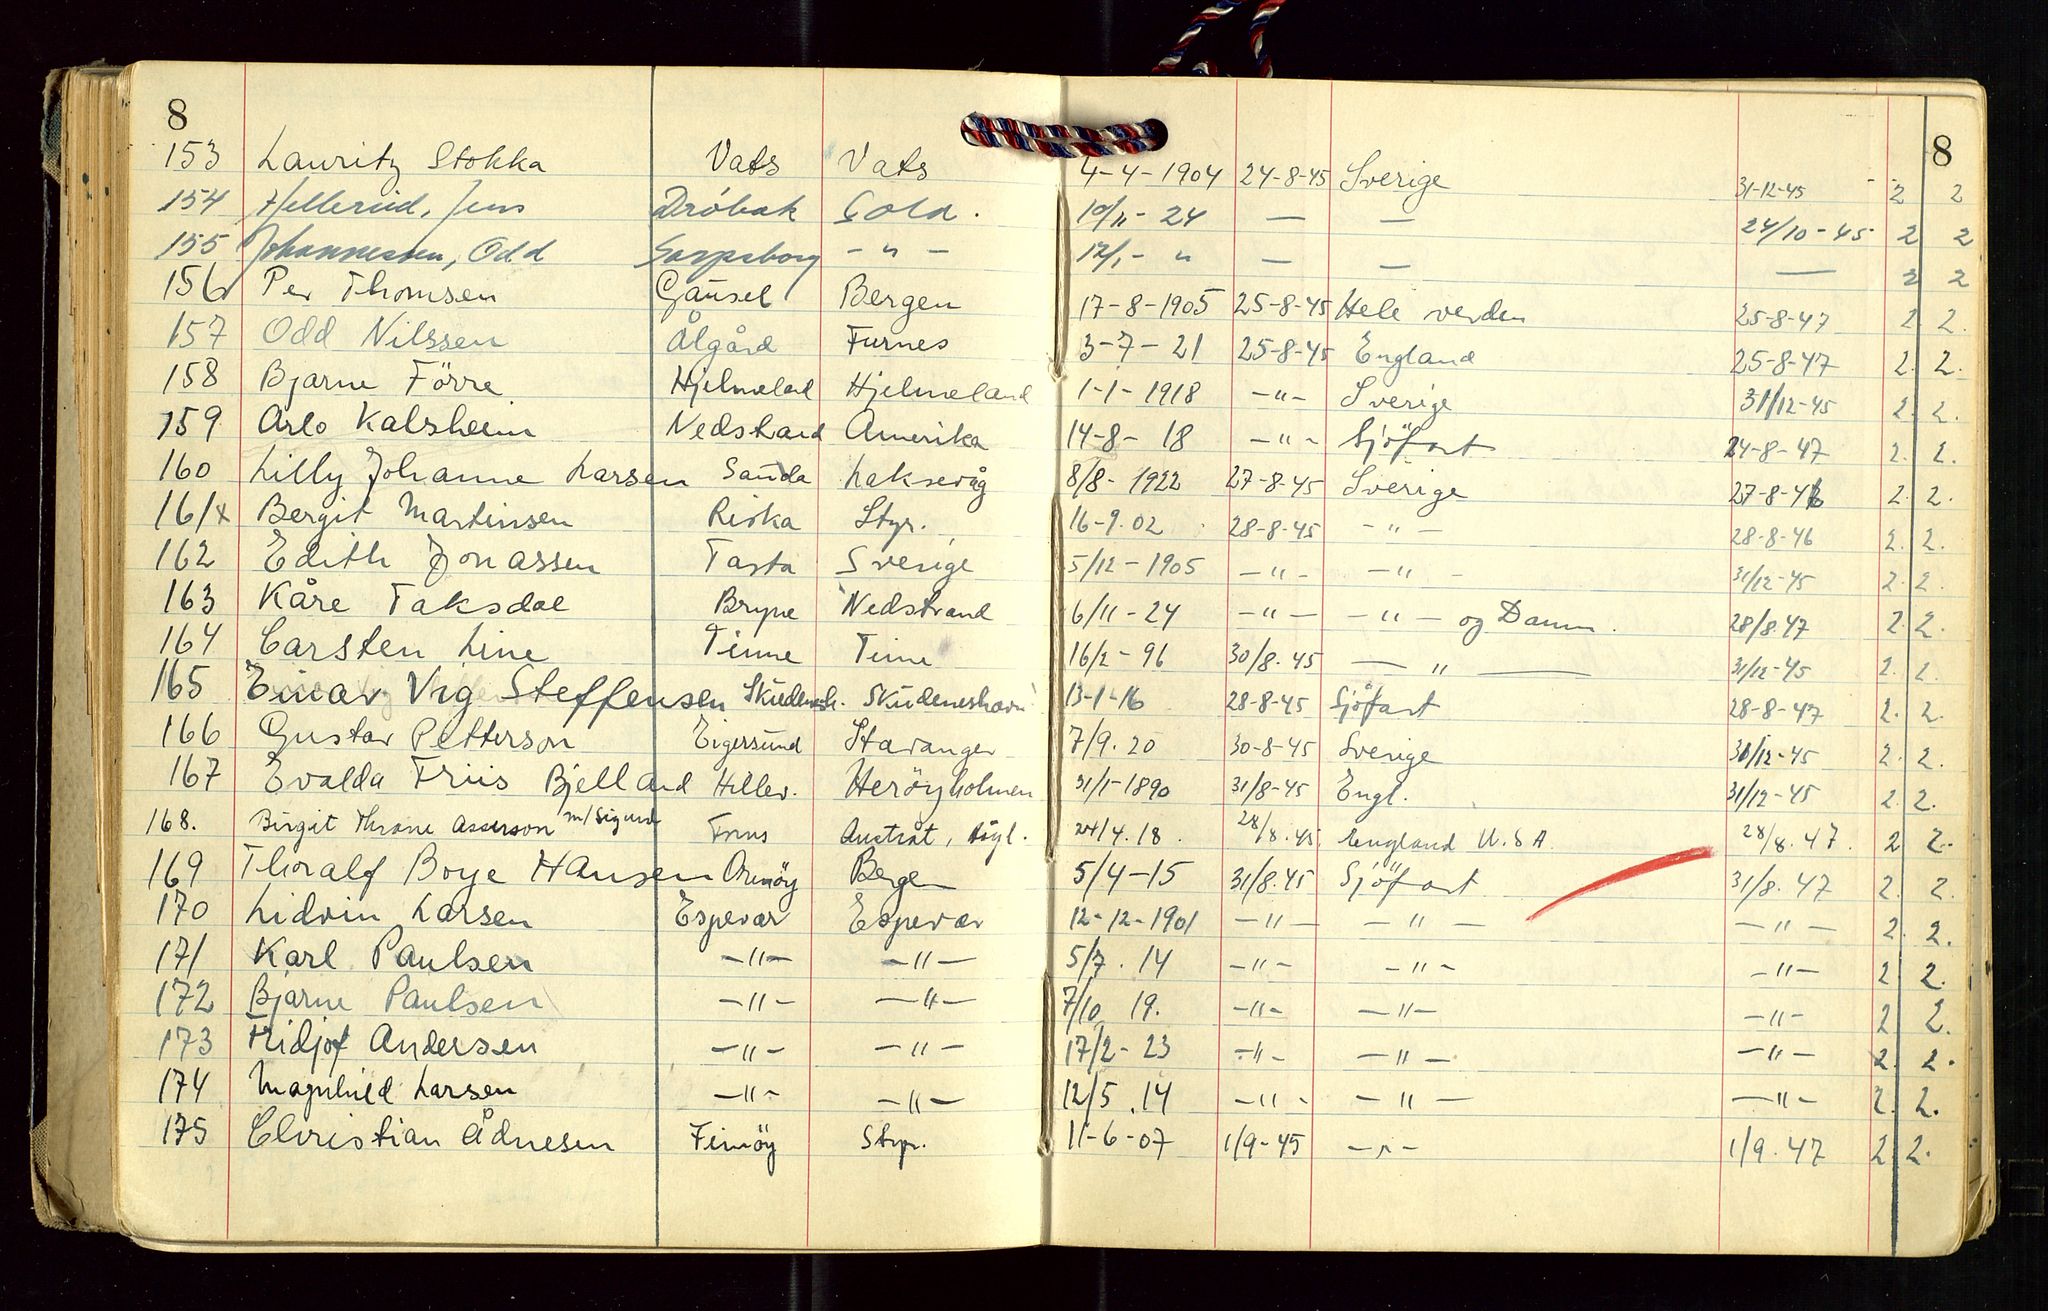 8 8
153 Lauritz Stokka Vats Vats 4-4-1904 24-8-45 Sverige 31-12-45 2 2
154 Hellerud, Jens Dröbak Sold. 10/11-24 — — 24/10-45 2 2
155 Johannessen, Odd Sarpsborg -"- 12/1-" — — — 2 2
156 Per Thomsen Gausel Bergen 17-8-1905 25-8-45 Hele verden 25-8-47 2. 2.
157 Odd Nilssen Ålgård Furnes 3-7-21 25-8-45 England 25-8-47 2. 2.
158 Bjarne Förre Hjelmelad Hjelmeland 1-1-1918 -"- Sverige 31/12-45 2. 2.
159 Arlo Kalsheim Nedstrand Amerika 14-8-18 -"- Sjöfart 24-8-47 2. 2.
160 Lilly Johanne Larsen Sauda Laksevåg 8/8-1922 27-8-45 Sverige 27-8-46 2. 2.
161x Bergit Martinsen Riska Styr. 16-9.02 28-8-45 -"- 28-8-46 2. 2.
162 Edith Jonassen Tasta Sverige 5/12-1905 -"- -"- 31/12-45 2. 2.
163 Kåre Taksdal Bryne Nedstrand 6/11-24 -"- -"- og Danm. 28/8.47 2. 2.
164 Carsten Line Timme Time 16/2-96 30/8.45 —"— 31/12-45 2. 2.
165 Einar Vig Steffensen Skudenesh. Skudeneshavn 13-1-16 28-8-45 Sjöfart 28-8-47 2. 2.
166 Gustav Petterson Eigersund Stavanger 7/9.20 30-8-45 Sverige 31/12-45 2. 2.
167 Evalda Friis Bjelland Hillev. Heröyholmen 31/1-1890 31/8-45 Engl. 31/12-45 2. 2.
168. Birgit Thrane Asserson m/Sigurd Forus Austråt, Högl. 24/4.18. 28/8.45 England U.S.A. 28/8.47. 2 2.
169 Thoralf Boye Hansen Ormöy Bergen 5/4-15 31/8.45 Sjöfart 31/8.47 2. 2.
170 Lidvin Larsen Espevær Espevær 12-12-1901 -"- -"- -"- 2. 2.
171 Karl Paulsen -"- -"- 5/7.14 -"- -"- -"- 2 2.
172 Bjarne Paulsen -"- -"- 7/10 19. -"- -"- -"- 2 2.
173 Fridjof Andersen -"- -"- 17/2-23 -"- -"- -"- 2. 2.
174 Magnhild Larsen -"- -"- 12/5.14 -"- -"- -"- 2. 2.
175 Christian Ådnesen Finnöy Styr. 11-6-07 1/9-45 -"- 1/9.47 2 2.